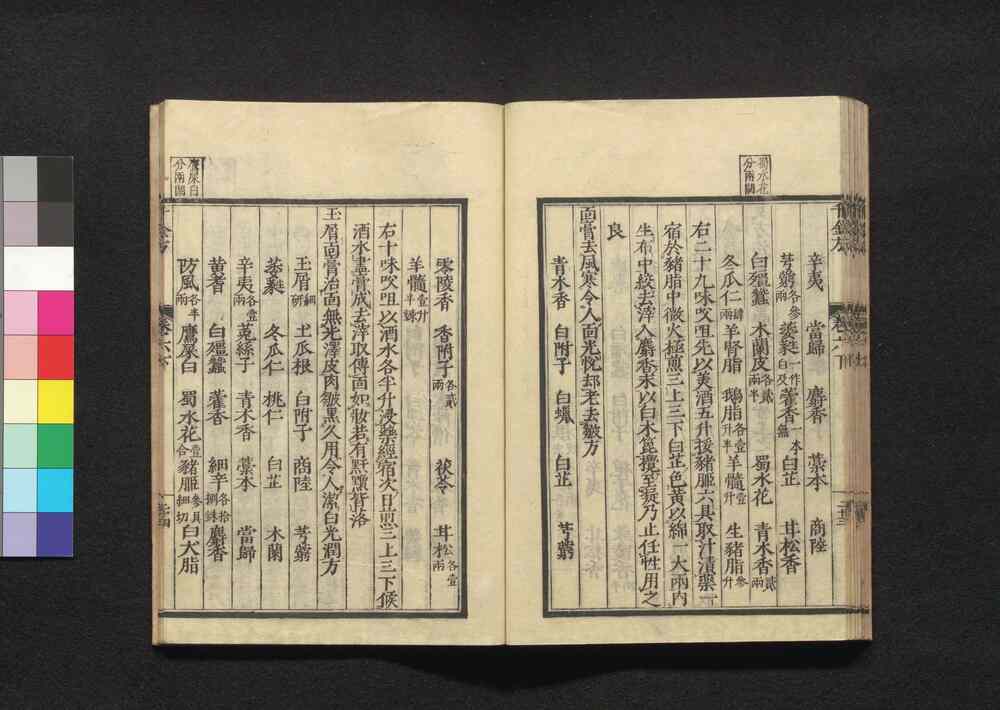 蜀水花
分兩闕
辛夷 當歸 麝香 藁本 商陸
芎藭各參兩 藁香一本無 白芷 甘松香
白殭蠶 木蘭皮各貳兩半 蜀水花 青木香貳兩
冬瓜仁肆兩 羊腎脂 鵝脂各壹升半 羊髓壹升 生豬脂參升
右二十九味㕮咀先以美酒五升挼豬胰六具取汁漬藥一
宿於豬脂中微火極煎三上三下白芷色黃以綿一大兩內
生布中絞去滓入麝香末以白木箆攪至凝乃止任性用之
良
面膏去風寒令人面光悅却老去皺方
青木香 白附子 白蠟 白芷 芎藭
零陵香 香附子各貳兩 茯苓 甘松各壹兩
羊髓壹升半鍊
右十味㕮咀以酒水各半升浸藥經宿次日煎三上三下候
酒水盡膏成去滓取傅面如妝若有䵟䵳皆落
玉屑面膏治面無光澤皮肉皴黑久用令人潔白光潤方
玉屑細研 土瓜根 白附子 商陸 芎藭
冬瓜仁 桃仁 白芷 木蘭
辛夷各壹兩 菟絲子 青木香 藁本 當歸
黃耆 白殭蠶 藿香 細辛各拾捌銖 麝香
防風各半兩 鷹屎白 蜀水花壹合 豬胰參具細切 白犬脂
鷹屎白
分兩闕